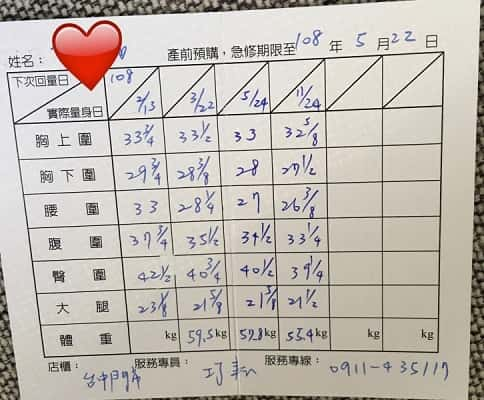 姓名: 產前預購,急修期限至108年5月22日
下次回量日 108
實際量身日 2/13 3/22 5/24 11/24
胸上圍 33 3/4 33 1/2 33 32 5/8
胸下圍 29 3/4 28 3/8 28 27 1/2
腰圍 33 28 1/4 27 26 3/8
腹圍 37 3/4 35 1/2 34 1/2 33 1/4
臀圍 42 1/2 40 3/4 40 1/2 39 1/4
大腿 21 5/8 21 5/8 21 1/2
體重 kg 59.5kg 57.8kg 55.4kg kg kg
店櫃: 服務專員: 服務專線: 0911-435117
台中門市